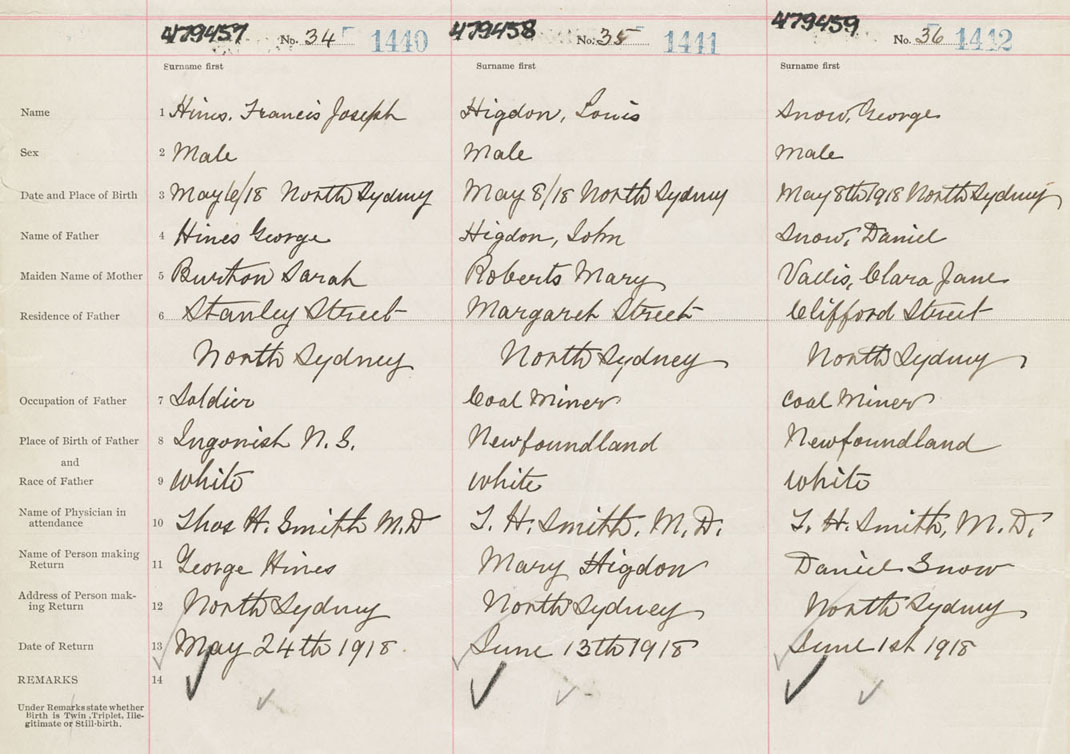 479457 No. 34 1440 479458 No. 35 1441 479459 No. 36 1442
Surname first Surname first Surname first
Name 1 Hines, Francis Joseph Higdon, Louis Snow, George
Sex 2 Male Male Male
Date and Place of Birth 3 May 6/18 North Sydney May 8/18 North Sydney May 8th 1918 North Sydney
Name of Father 4 Hines George Higdon, John Snow, Daniel
Maiden Name of Mother 5 Burton Sarah Roberts Mary Vallis, Clara Jane
Residence of Father 6 Stanley Street Margaret Street Clifford Street
North Sydney North Sydney North Sydney
Occupation of Father 7 Soldier Coal Miner Coal Miner
Place of Birth of Father 8 Ingonish N.S. Newfoundland Newfoundland
and
Race of Father 9 White White White
Name of Physician in
attendance 10 Thos H. Smith M.D T. H. Smith, M.D. T. H. Smith, M.D.
Name of Person making
Return 11 George Hines Mary Higdon Daniel Snow
Address of Person mak-
ing Return 12 North Sydney North Sydney North Sydney
Date of Return 13 May 24th 1918 June 13th 1918 June 1st 1918
REMARKS 14
Under Remarks state whether
Birth is Twin, Triplet, Ille-
gitimate or Still-birth.